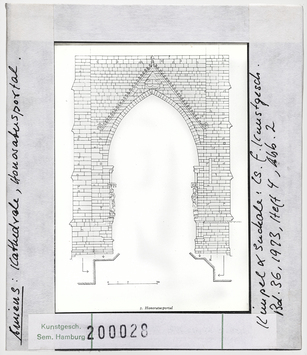 Amiens: Kathedrale, Honoratusportal.
Kimpel & Suckale: Zs. f. Kunstgesch.
Bd. 36, 1973, Heft 4, Abb. 2
2. Honoratusportal
Kunstgesch.
Sem. Hamburg
200028